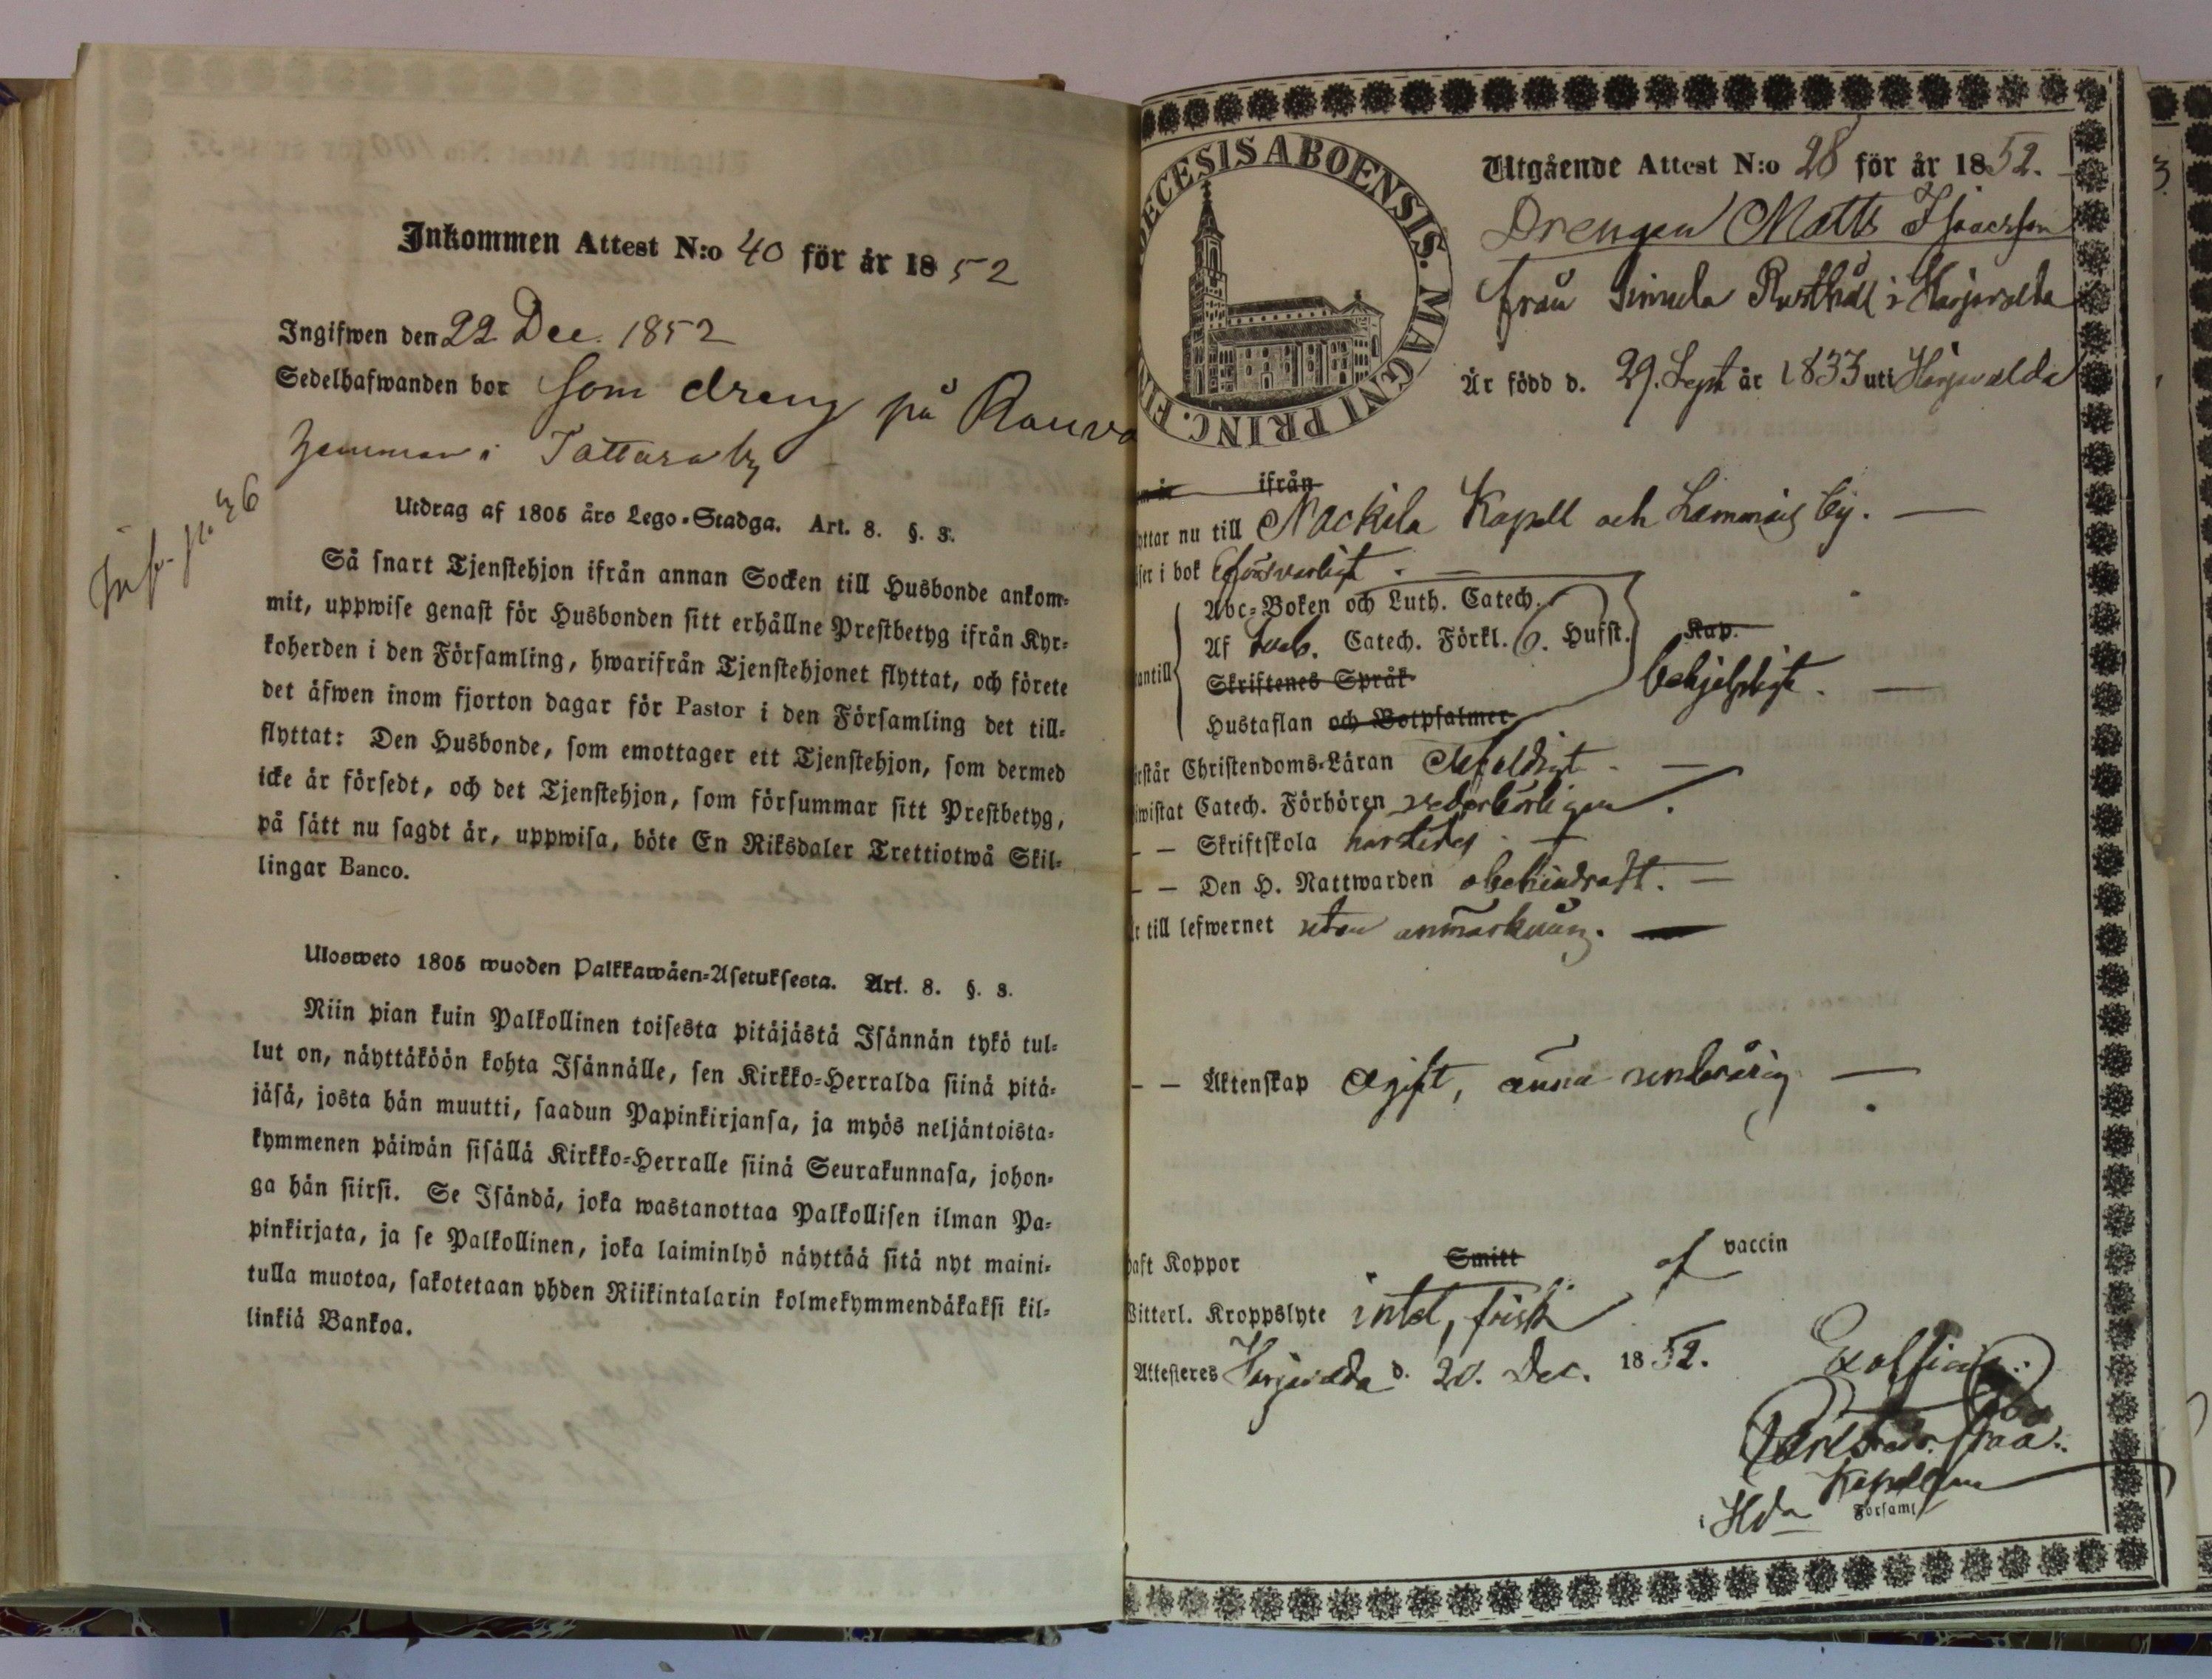 Inkommen Attest N:o 40 för år 1852
Ingifwen den 22 Dec. 1852
Sedelhafwanden bor som dreng på Rauva
hemman i Tattara by
Inf. № 36
Utdrag af 1805 års Lego-Stadga. Art. 8. §. 3.
Så snart Tjenstehjon ifrån annan Socken till Husbonde ankom-
mit, uppwise genast för Husbonden sitt erhållne Prestbetyg ifrån Kyr-
koherden i den Församling, hwarifrån Tjenstehjonet flyttat, och förete
det äfwen inom fjorton dagar för Pastor i den Församling det till-
flyttat: Den Husbonde, som emottager ett Tjenstehjon, som dermed
icke är försedt, och det Tjenstehjon, som försummar sitt Prestbetyg,
på sätt nu sagdt är, uppwisa, böte En Riksdaler Trettiotwå Skil-
lingar Banco.
Ulosweto 1805 wuoden Palkkawäen-Asetuksesta. Art. 8. §. 3.
Niin pian kuin Palkollinen toisesta pitäjästä Isännän tykö tul-
lut on, näyttäköön kohta Isännälle, sen Kirkko-Herralda siinä pitä-
jäsä, josta hän muutti, saadun Papinkirjansa, ja myös neljäntoista-
kymmenen päiwän sisällä Kirkko-Herralle siinä Seurakunnasa, johon-
ga hän siirsi. Se Isändä, joka wastanottaa Palkollisen ilman Pa-
pinkirjata, ja se Palkollinen, joka laiminlyö näyttää sitä nyt maini-
tulla muotoa, sakotetaan yhden Riikintalarin kolmekymmendäkaksi kil-
linkiä Bankoa.
ECESIS ABOENSIS. MAGNI PRINC. FIN
Utgående Attest N:o 28 för år 1852.
Drengen Matts Isaacsson
från Simula Rusthåll i Harjavalda
Är född d. 29. Sept. år 1833 uti Harjavalda
ifrån
ttar nu till Nackila Kapell och Lammais by.
ser i bok försvarligt.
Abc-Boken och Luth. Catech.
Af Catech. Förkl. Hufst. Kap.
antill Skriftenes Språk behjelpligt.
Hustaflan och Botpsalmer
rstår Christendoms-Läran enfaldigt.
wistat Catech. Förhören vederbörligen.
– – Skriftskola
– – Den H. Nattwarden obehindradt.
r till lefwernet utan anmärkning.
– – Äktenskap Ogift, ännu underårig
aft Koppor Smitt af vaccin
itterl. Kroppslyte intet, frisk
Attesteres Harjavalda d. 20. Dec. 1852.
Kapellan
i Hda Församl.